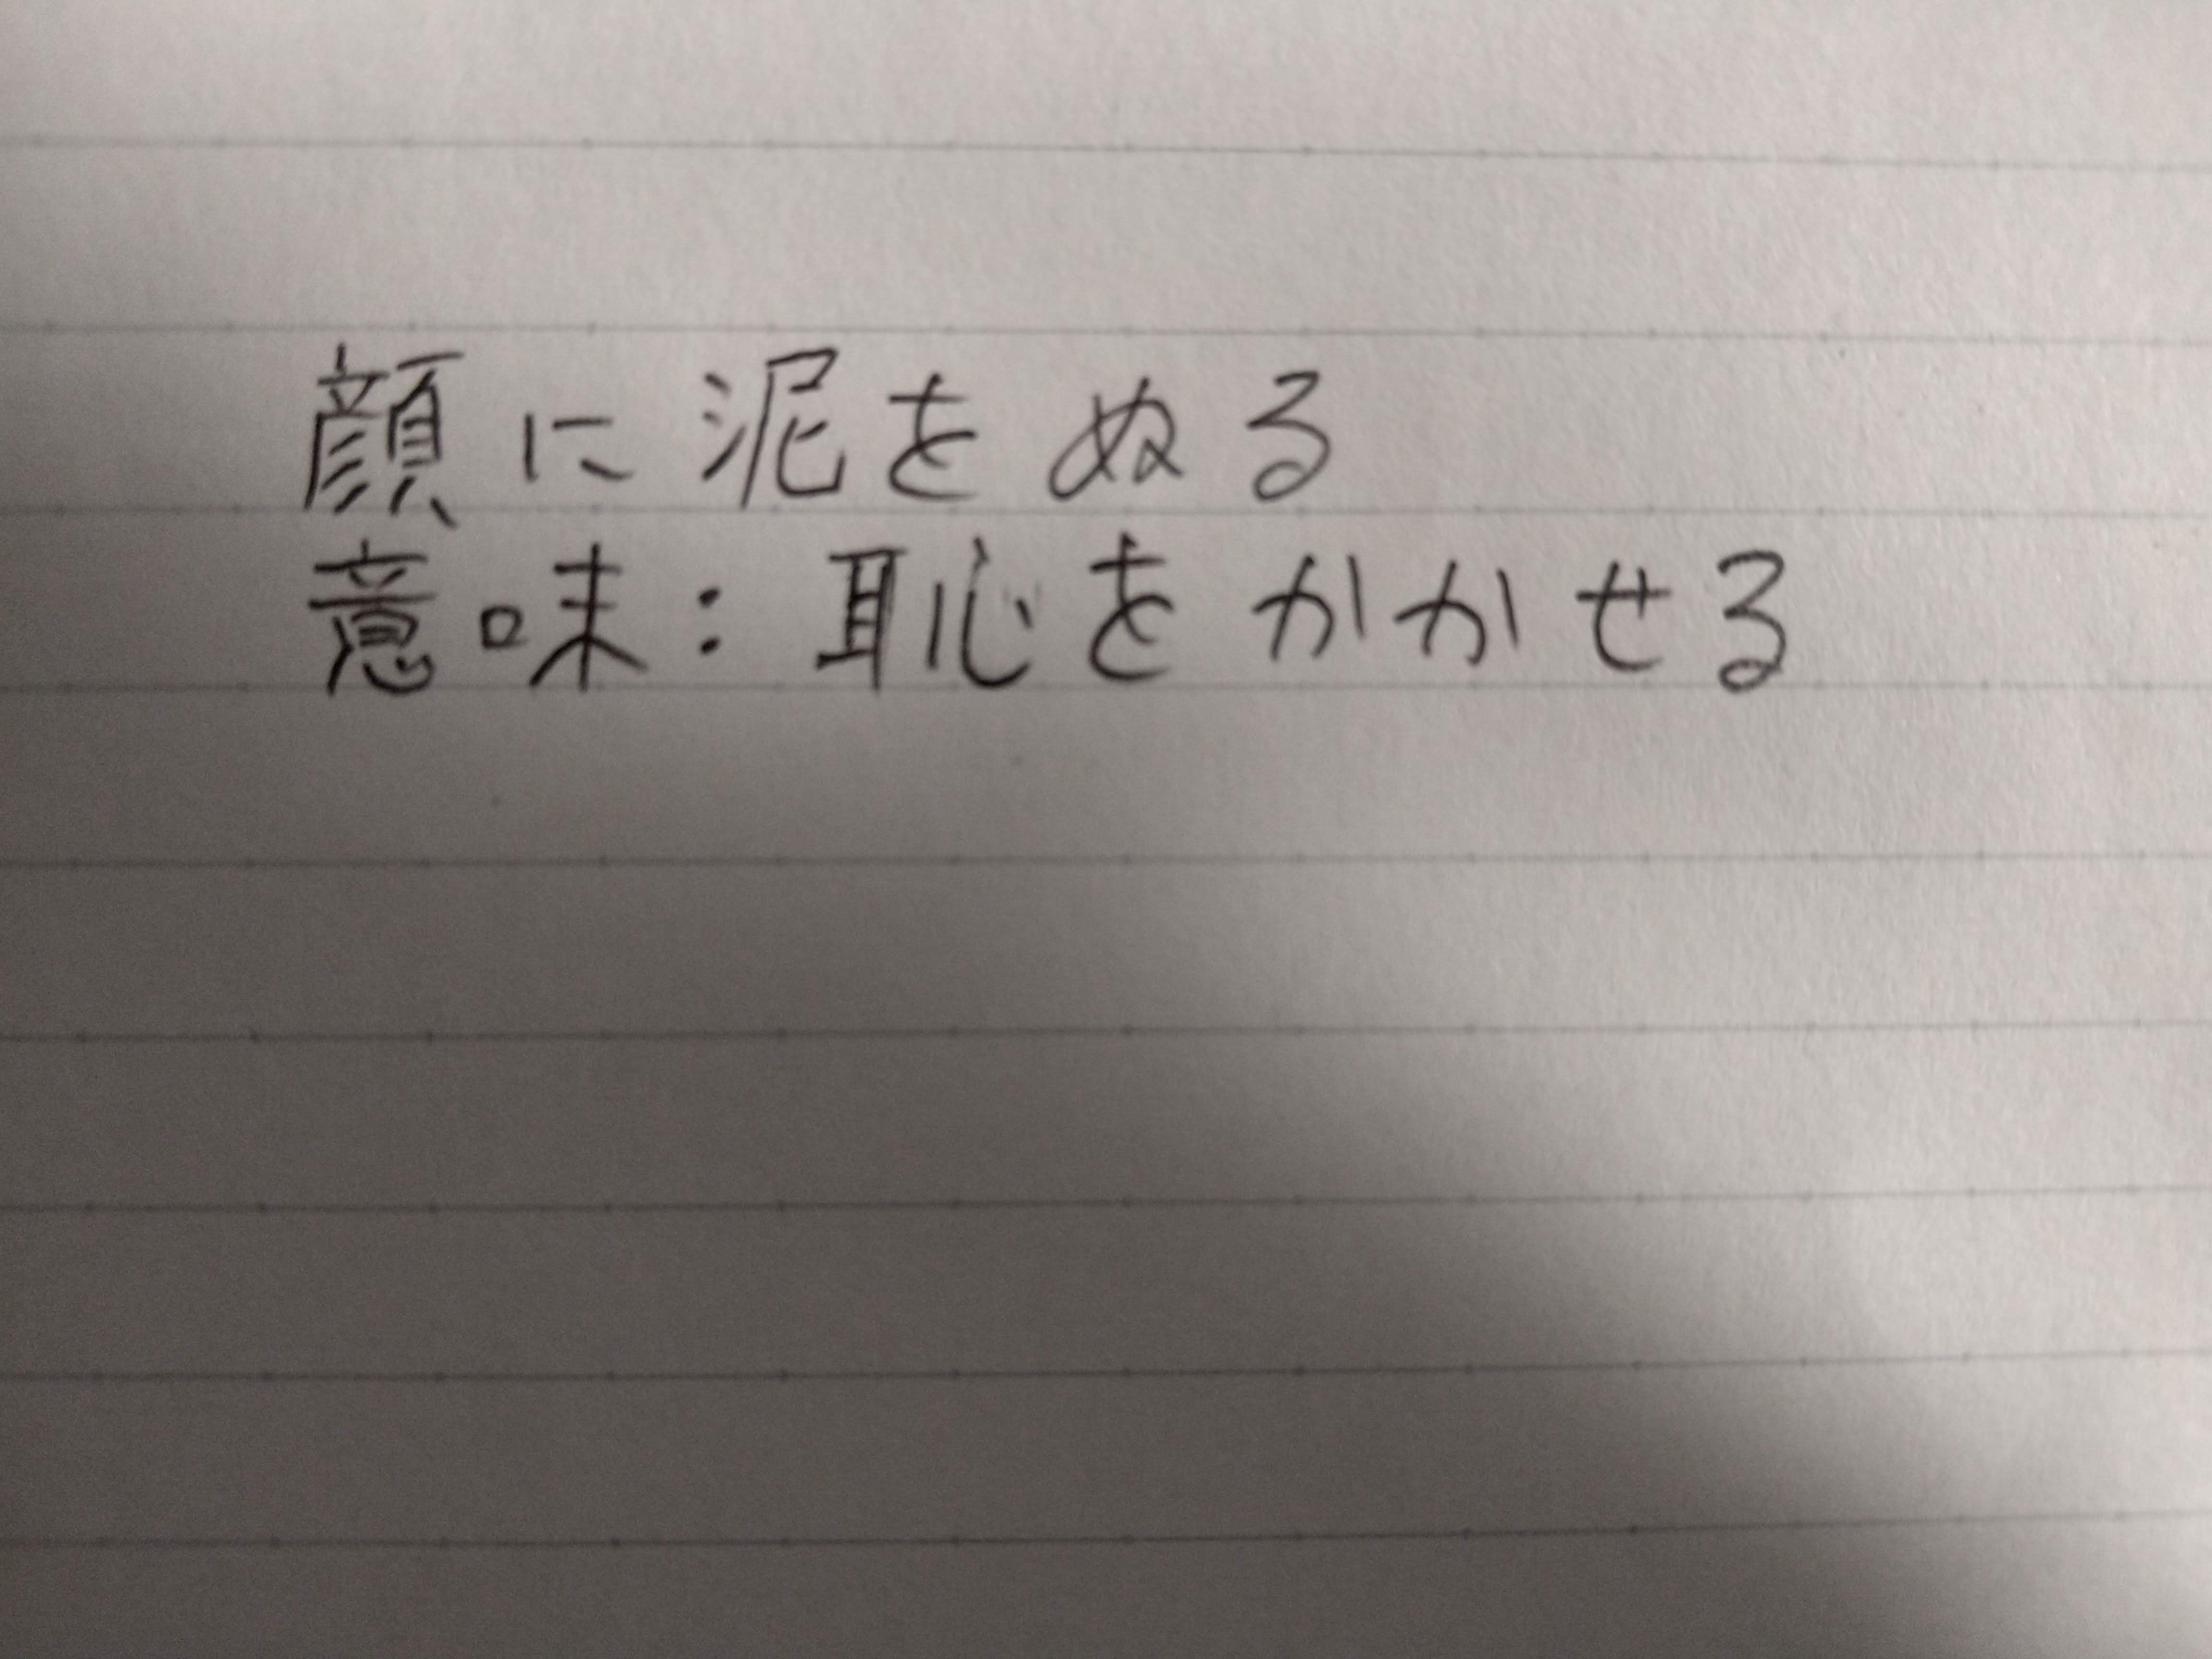 顔に泥をぬる
意味：恥をかかせる